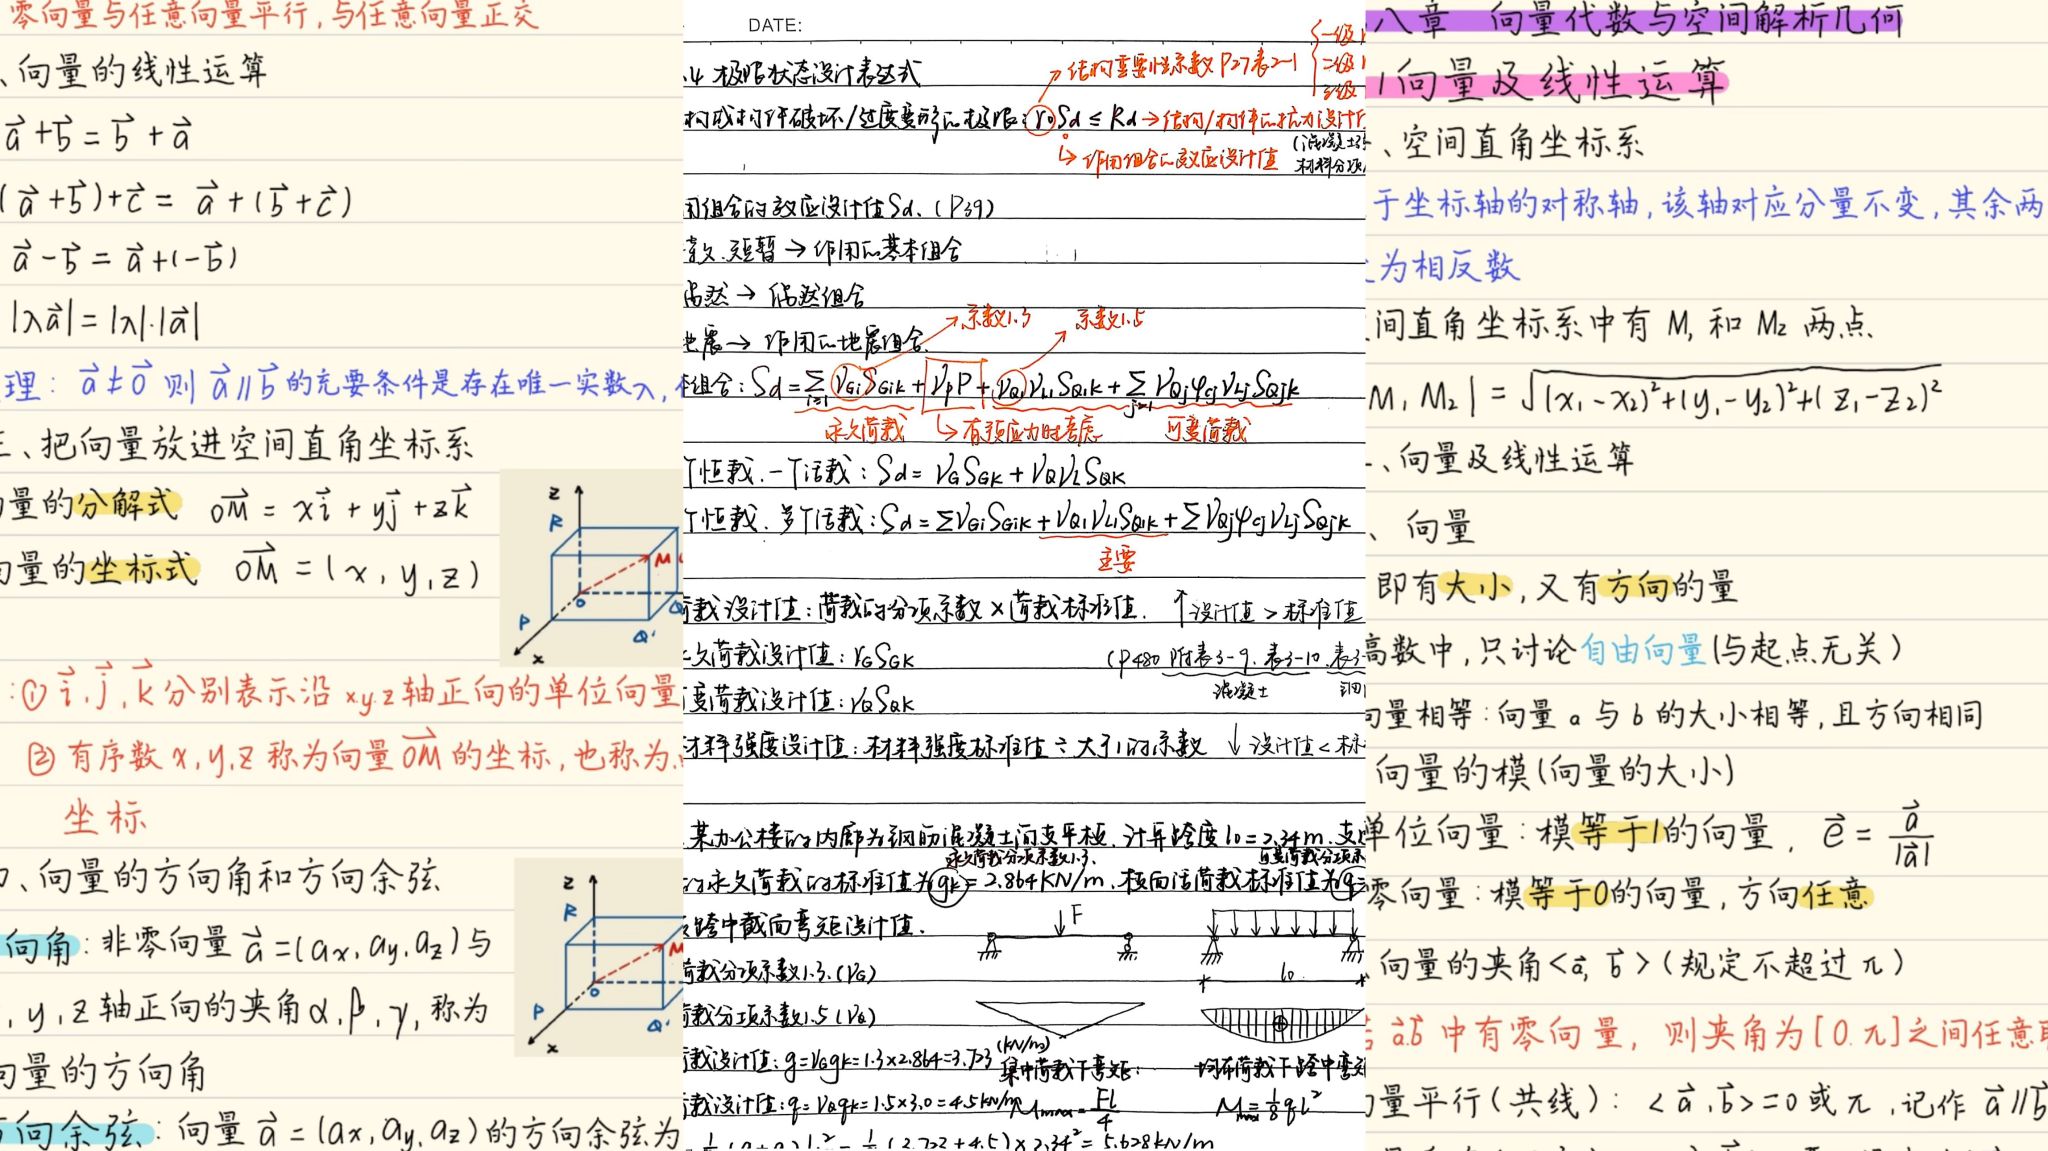 零向量与任意向量平行,与任意向量正交
、向量的线性运算
a⃗+b⃗=b⃗+a⃗
(a⃗+b⃗)+c⃗= a⃗+(b⃗+c⃗)
a⃗-b⃗=a⃗+(-b⃗)
|λa⃗|=|λ|·|a⃗|
理: a⃗≠0⃗ 则 a⃗∥b⃗ 的充要条件是存在唯一实数λ,
三、把向量放进空间直角坐标系
量的分解式 OM⃗ = xi⃗+yj⃗+zk⃗
向量的坐标式 OM⃗ =(x, y, z)
z
R
M
O
P
Q'
x
:① i⃗.j⃗.k⃗分别表示沿 x.y.z轴正向的单位向量
② 有序数 x,y,z 称为向量OM⃗的坐标,也称为
坐标
、向量的方向角和方向余弦
向角:非零向量 a⃗=(ax,ay,az)与
,y,z轴正向的夹角α,β,γ,称为
向量的方向角
z
R
M
O
P
Q'
x
方向余弦:向量 a⃗=(ax,ay,az)的方向余弦为
DATE:
.4 极限状态设计表达式
结构重要性系数 P27表2-1
一级
二级
三级
构或构件破坏/过度变形的极限:γ0Sd ≤ Rd → 结构/构件的抗力设计
↳ 作用组合的效应设计值
用组合的效应设计值Sd.(P39)
持久.短暂 → 作用的基本组合
偶然 → 偶然组合
地震 → 作用的地震组合
系数1.3
系数1.5
本组合:Sd=∑i≥1 γGiSGik+γpP+γQ1γL1SQ1k+∑j>1 γQjψcjγLjSQjk
永久荷载 ↳ 有预应力时考虑 可变荷载
个恒载.一个活载:Sd=γGSGK+γQγLSQK
个恒载.多个活载:Sd=∑γGiSGik+γQ1γL1SQ1k+∑γQjψcjγLjSQjk
主要
荷载设计值:荷载的分项系数×荷载标准值. ↑设计值>标准值
永久荷载设计值:γGSGK
(P480 附表3-9.表3-10.表3-
混凝土
可变荷载设计值:γQSQK
材料强度设计值:材料强度标准值÷大于1的系数 ↓设计值<标
某办公楼的内廊为钢筋混凝土简支平板.计算跨度l0=2.34m.支
永久荷载分项系数1.3.
可变荷载分项系
的永久荷载的标准值为gk=2.864KN/m.板面活荷载标准值为q
跨中截面弯矩设计值.
F
l0
荷载分项系数1.3.(γG)
荷载分项系数1.5(γQ)
荷载设计值:g=γGgk=1.3×2.864=3.723 (KN/m)
荷载设计值:q=γQqk=1.5×3.0=4.5KN/m
集中荷载下弯矩:
Mmax=Fl/4
均布荷载下跨中弯矩
Mmax=1/8ql²
(g+q)l²=1/8(3.723+4.5)×2.34²=5.628KN/m
八章 向量代数与空间解析几何
1向量及线性运算
、空间直角坐标系
于坐标轴的对称轴,该轴对应分量不变,其余两
为相反数
间直角坐标系中有 M1 和 M2 两点.
M1M2|=√(x1-x2)²+(y1-y2)²+(z1-z2)²
、向量及线性运算
、向量
即有大小,又有方向的量
高数中,只讨论自由向量(与起点无关)
向量相等:向量a与b的大小相等,且方向相同
向量的模(向量的大小)
单位向量:模等于1的向量, e⃗=a⃗/|a⃗|
零向量:模等于0的向量,方向任意
向量的夹角<a⃗,b⃗>(规定不超过π)
a⃗.b⃗中有零向量, 则夹角为[0.π]之间任意
量平行(共线): <a⃗,b⃗>=0或π,记作 a⃗∥b⃗